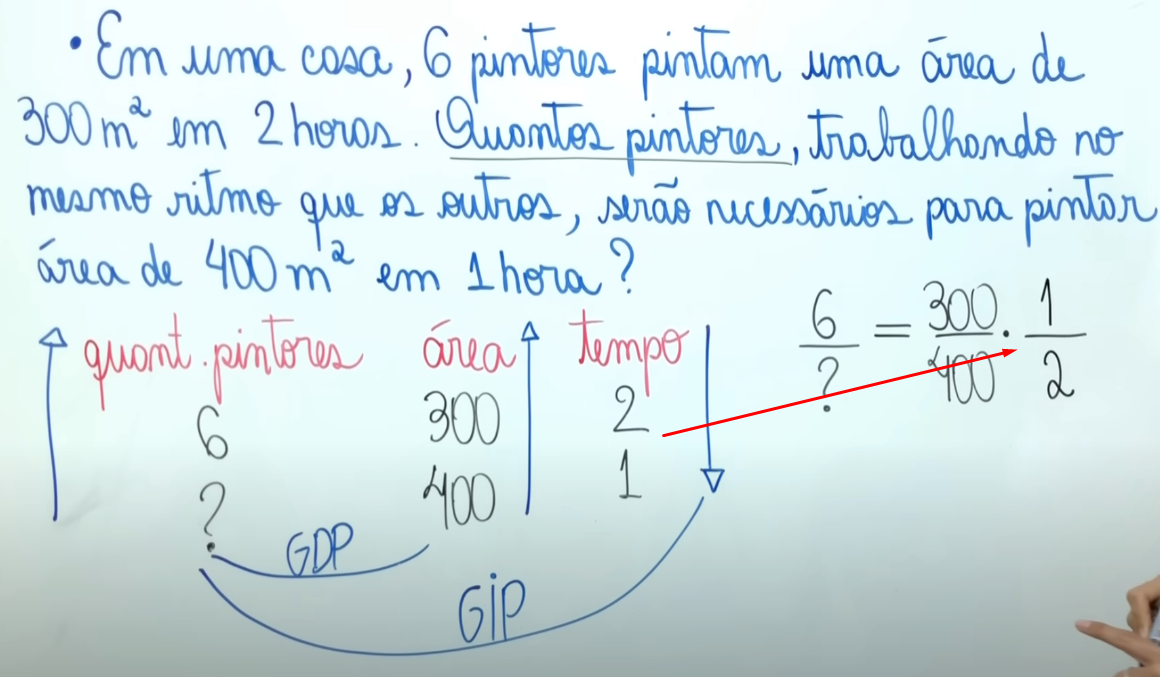 • Em uma casa, 6 pintores pintam uma área de
300 m² em 2 horas. Quantos pintores, trabalhando no
mesmo ritmo que os outros, serão necessários para pintar
área de 400 m² em 1 hora?
quant. pintores área tempo
6 300 2
? 400 1
GDP
GIP
6/? = 300/400 . 1/2